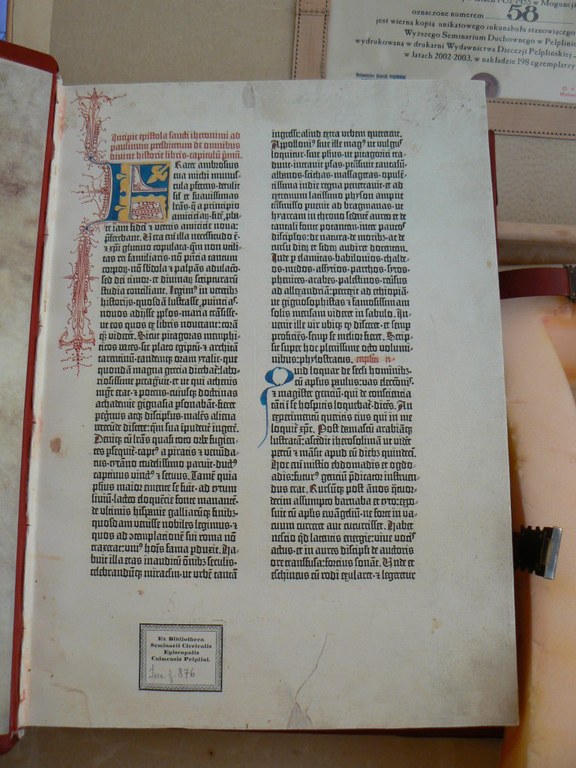 oznaczone numerem 58
jest wierną kopią unikatowego inkunabułu stanowiącego
Wyższego Seminarium Duchownego w Pelplinie
w drukarni Wydawnictwa Diecezji Pelplińskiej
w latach 2002-2003, w nakładzie 198 egzemplarzy
Incipit epistola sancti iheronimi ad
paulinum presbiterum de omnibus
divine historie libris capitulū pmū.
Frater ambrosius
tua michi munus-
cula pferens · detulit
sil et suavissimas
lrās · q̄ a principio
amiciciaꝝ · fidē pba-
te iam fidei et veteris amicicie nova:
pferebant. Vera eni illa necessitudo ē ·
et xp̄i glutino copulata · qm non vtili-
tas rei familiaris · nō pn̄cia tantum
corpoꝝ · nō sbdola et palpās adulacō ·
sed dei timor · et divinaꝝ scripturarū
studia conciliant. Legim⁹ in veterib⁹
historijs · quosdā lustrasse puincias ·
novos adijsse plos · maria transisse ·
ut eos quos ex libris noverant: corā
qȝ viderēt. Sicut pitagoras memphi-
ticos vates · sic plato egiptū · et architā
tarentinū · eandemqȝ oram ytalie · que
quondā magna grecia dicebat: labo-
riosissime peragravit · et ut qui athenis
mgr̄ erat · et potens · cuiusqȝ doctrinas
achademie gignasia psonabāt · fieret
pegrinus atqȝ discipulus · malens aliena
verecunde discere: qm sua īpudenter ingerē.
Deniqȝ cū lrās quasi toto orbe fugien-
tes psequit̄ · capt⁹ a piratis et venūda-
tus · tyrāno crudelissimo paruit · duct⁹
captivus vinct⁹ et servus. Tamē quia
phūs · maior emente se fuit · ad tytum
liviū lacteo eloquencie fonte manantē ·
de ultimis hispanie galliarūqȝ finibȝ ·
quosdam venisse nobiles legimus · et
quos ad ꝯtemplacionē sui roma nō
traxerat: uni⁹ hoīs fama pduxit. Ha-
buit illa etas inauditū oībȝ seculis ·
celebrandūqȝ miraclm · ut urbē tantā
ingressi: aliud extra urbem quererent.
Apolloni⁹ sive ille mag⁹ ut vulgus
loquitur · sive phūs ut pitagorici tra-
dunt · intravit psas · ptransivit caucasū ·
albanos · scithas · massagetas · opulē-
tissima indie regna penetravit · et ad
extremum latissimo physon ampne
trāsmisso puenit ad bragmanas · ut
hyarcam in throno sedentē aureo et de
tantali fonte potantem · inter paucos
discipulos · de natura · de moribȝ · ac de
cursu dieꝝ et sideꝝ audiret docentem.
Inde p elamitas · babilonios · chalde-
os · medos · assyrios · parthos · syros ·
phenices · arabes · palestinos · reversus
ad allexandriā: perrexit ad ethiopiā ·
ut gignosophistas et famosissimam
solis mensam videret in sabulo. In-
venit ille vir ubiqȝ qd disceret · et semp
proficiēs · semp se melior fieret. Scrip-
sit super hoc plenissime octo volumi-
nibus: phylostratus.
Quid loquar de seculi hominibȝ ·
cū apłus paulus · vas electionis ·
et magister genciū · qui de conscientia
tanti ī se hospitis loquebat̄ · dicēs. An
experimentū queritis eius qui in me
loquit̄ xp̄c. Post damascū arabiāqȝ
lustratā: ascēdit iherosolimā ut vidēt
petrū et māsit apud eū diebȝ quindeci.
Hoc eni misterio ebdomadis et ogdo-
adis: futur⁹ genciū pdicator instruen-
dus erat. Rursūqȝ post annos q̄tuor-
decim assumpto barnaba et tyto · expo-
suit cū aplis evāgeliū · ne forte in va-
cuum curreret aut cucurrisset. Habet
nescio qd latentis energie: vive vocis
actus · et in aures discipuli de auctoris
ore transfusa: forcius sonat. Unde et
eschineus cū rodi exularet · et legeretur
Ex Bibliotheca
Seminarii Clericalis
Episcopalis
Culmensis Pelplini.
876